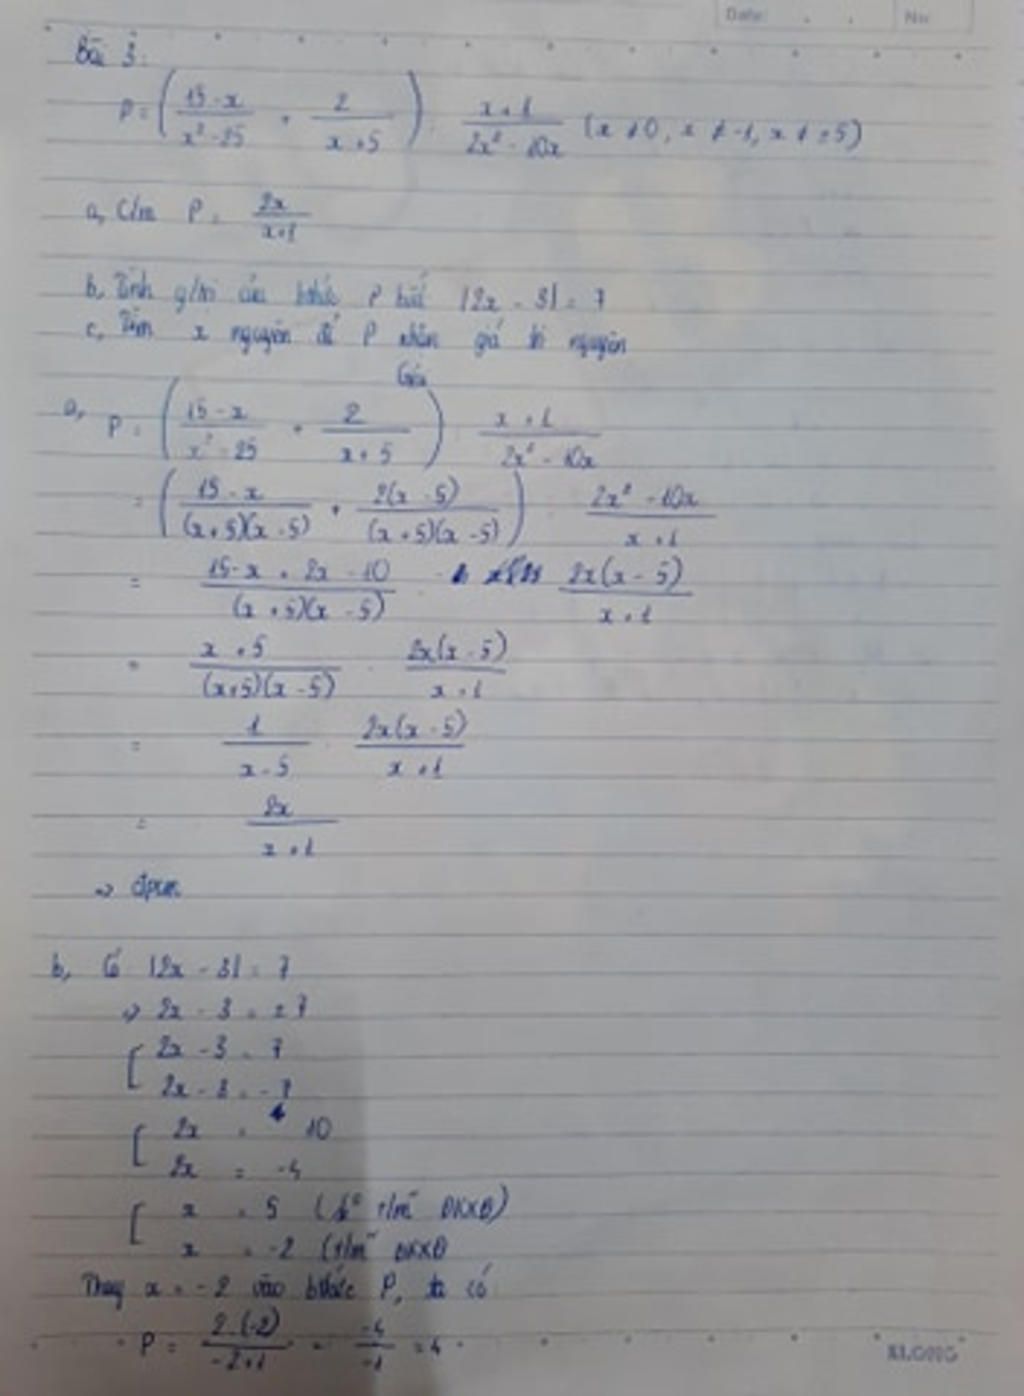 Date: No:
Bài 3:
P = ( (15 - x)/(x² - 25) + 2/(x + 5) ) : (x + 1)/(2x² - 10x) (x ≠ 0, x ≠ -1, x ≠ ±5)
a, C/m P = 2x/(x+1)
b, Tính g/trị của bthức P biết |2x - 3| = 7
c, Tìm x nguyên để P nhận giá trị nguyên
Giải
a, P = ( (15 - x)/(x² - 25) + 2/(x + 5) ) : (x + 1)/(2x² - 10x)
= ( (15 - x)/((x+5)(x - 5)) + 2(x - 5)/((x + 5)(x - 5)) ) . (2x² - 10x)/(x + 1)
= (15 - x + 2x - 10)/((x + 5)(x - 5)) . 2x(x - 5)/(x + 1)
= (x + 5)/((x+5)(x - 5)) . 2x(x - 5)/(x + 1)
= 1/(x - 5) . 2x(x - 5)/(x + 1)
= 2x/(x + 1)
=> đpcm
b, Có |2x - 3| = 7
=> 2x - 3 = ±7
[ 2x - 3 = 7
2x - 3 = - 7
[ 2x = 10
2x = -4
[ x = 5 (k° t/m̃ ĐKXĐ)
x = -2 (t/m̃ ĐKXĐ
Thay x = -2 vào bthức P, ta có
P = 2.(-2)/(-2+1) = -4/-1 = 4
KLONG